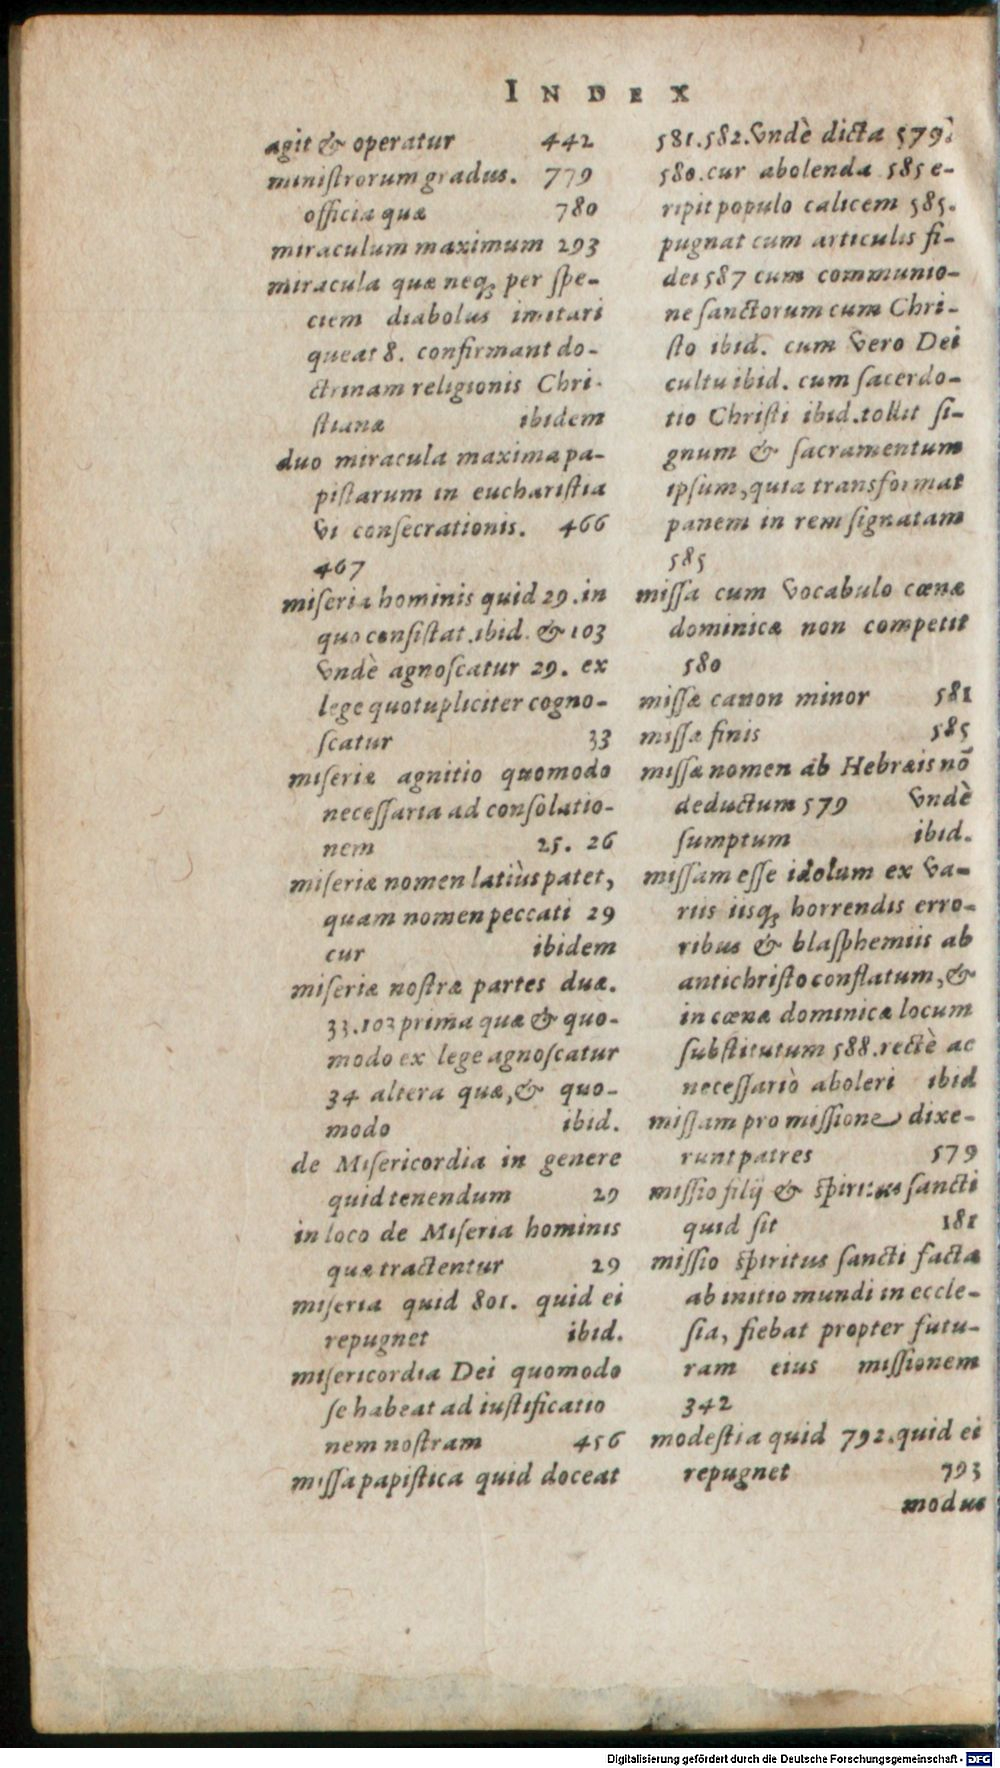 INDEX
agit & operatur 442
ministrorum gradus. 779
officia quæ 780
miraculum maximum 293
miracula quæ neq; per spe-
ciem diabolus imitari
queat 8. confirmant do-
ctrinam religionis Chri-
stianæ ibidem
duo miracula maxima pa-
pistarum in eucharistia
vi consecrationis. 466
467
miseria hominis quid 29. in
quo consistat. ibid. & 103
vndè agnoscatur 29. ex
lege quotupliciter cogno-
scatur 33
miseriæ agnitio quomodo
necessaria ad consolatio-
nem 25. 26
miseriæ nomen latiùs patet,
quam nomen peccati 29
cur ibidem
miseriæ nostræ partes duæ.
33.103 prima quæ & quo-
modo ex lege agnoscatur
34 altera quæ, & quo-
modo ibid.
de Misericordia in genere
quid tenendum 29
in loco de Miseria hominis
quæ tractentur 29
miseria quid 801. quid ei
repugnet ibid.
misericordia Dei quomodo
se habeat ad iustificatio
nem nostram 456
missa papistica quid doceat
581.582. vndè dicta 579.
580. cur abolenda 585 e-
ripit populo calicem 585.
pugnat cum articulis fi-
dei 587 cum communio-
ne sanctorum cum Chri-
sto ibid. cum vero Dei
cultu ibid. cum sacerdo-
tio Christi ibid. tollit si-
gnum & sacramentum
ipsum, quia transformat
panem in rem signatam
585
missa cum vocabulo cœnæ
dominicæ non competit
580
missæ canon minor 581
missæ finis 585
missæ nomen ab Hebræis nō
deductum 579 vndè
sumptum ibid.
missam esse idolum ex va-
riis iisq; horrendis erro-
ribus & blasphemiis ab
antichristo conflatum, &
in cœnæ dominicæ locum
substitutum 588. rectè ac
necessariò aboleri ibid
missam pro missione dixe-
runt patres 579
missio filij & spiritus sancti
quid sit 181
missio spiritus sancti facta
ab initio mundi in eccle-
sia, fiebat propter futu-
ram eius missionem
342
modestia quid 792. quid ei
repugnet 793
modus
Digitalisierung gefördert durch die Deutsche Forschungsgemeinschaft - DFG